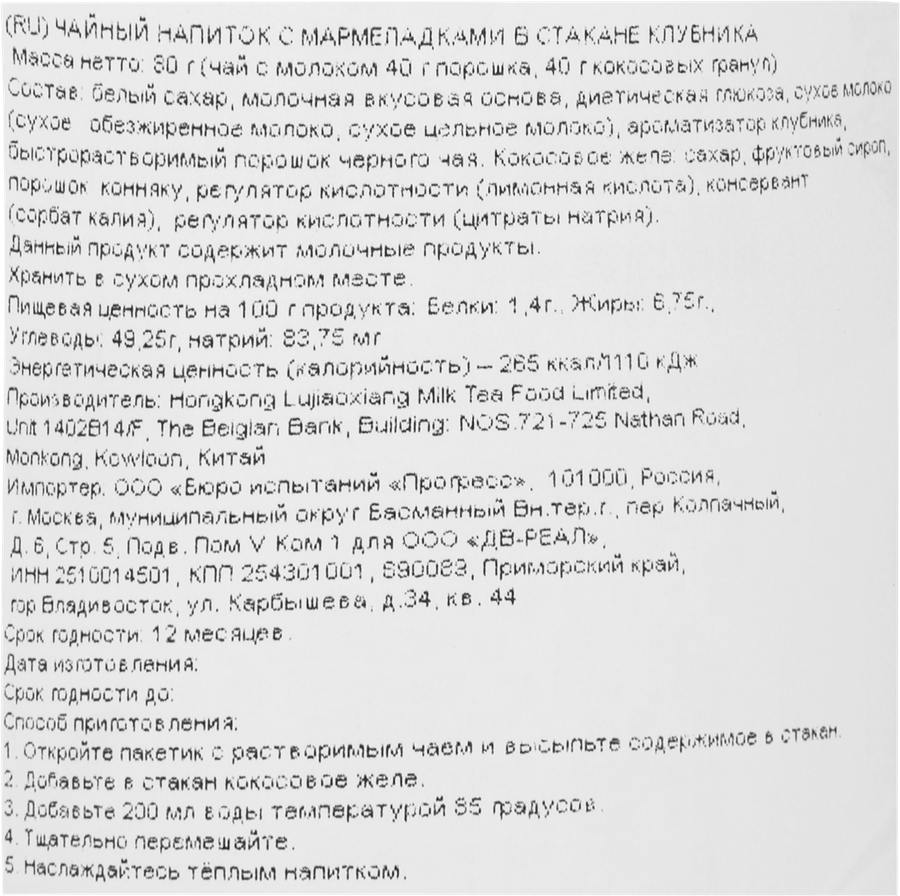 (RU) ЧАЙНЫЙ НАПИТОК С МАРМЕЛАДКАМИ В СТАКАНЕ КЛУБНИКА
Масса нетто: 80 г (чай с молоком 40 г порошка, 40 г кокосовых гранул)
Состав: белый сахар, молочная вкусовая основа, диетическая глюкоза, сухое молоко
(сухое обезжиренное молоко, сухое цельное молоко), ароматизатор клубника,
быстрорастворимый порошок черного чая. Кокосовое желе: сахар, фруктовый сироп,
порошок конняку, регулятор кислотности (лимонная кислота), консервант
(сорбат калия), регулятор кислотности (цитраты натрия).
Данный продукт содержит молочные продукты.
Хранить в сухом прохладном месте.
Пищевая ценность на 100 г продукта: Белки: 1,4г., Жиры: 6,75г.,
Углеводы: 49,25г, натрий: 83,75 мг
Энергетическая ценность (калорийность) – 265 ккал/1110 кДж
Производитель: Hongkong Lujiaoxiang Milk Tea Food Limited,
Unit 1402B14/F, The Belgian Bank, Building: NOS.721-725 Nathan Road,
Monkong, Kowloon, Китай
Импортер: ООО «Бюро испытаний «Прогресс», 101000, Россия,
г. Москва, муниципальный округ Басманный Вн.тер.г., пер Колпачный,
Д. 6, Стр. 5, Подв. Пом V Ком 1 для ООО «ДВ-РЕАЛ»,
ИНН 2510014501, КПП 254301001, 690089, Приморский край,
гор Владивосток, ул. Карбышева, д.34, кв. 44
Срок годности: 12 месяцев.
Дата изготовления:
Срок годности до:
Способ приготовления:
1. Откройте пакетик с растворимым чаем и высыпьте содержимое в стакан.
2. Добавьте в стакан кокосовое желе.
3. Добавьте 200 мл воды температурой 85 градусов.
4. Тщательно перемешайте.
5. Наслаждайтесь тёплым напитком.